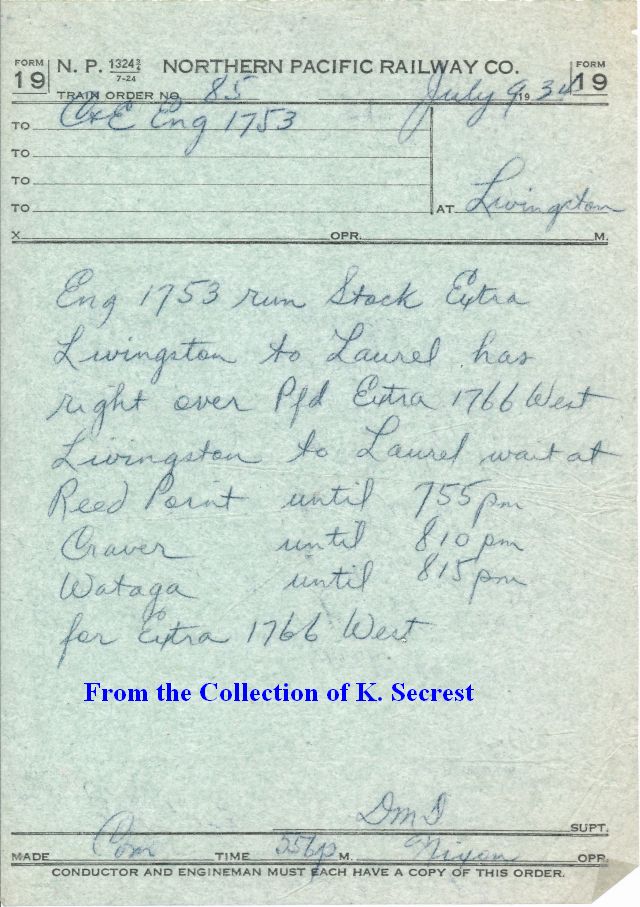 FORM 19 N. P. 1324¾ 7-24 NORTHERN PACIFIC RAILWAY CO. FORM 19
TRAIN ORDER NO. 85 July 9 1934
TO C&E Eng 1753
TO
TO
TO
TO AT Livingston
X OPR. M.
Eng 1753 run Stock Extra
Livingston to Laurel has
right over Pfd Extra 1766 West
Livingston to Laurel wait at
Reed Point until 755 pm
Craver until 810 pm
Wataga until 815 pm
for Extra 1766 West
From the Collection of K. Secrest
SUPT.
MADE Com TIME 556 p M. Nixon OPR.
CONDUCTOR AND ENGINEMAN MUST EACH HAVE A COPY OF THIS ORDER.